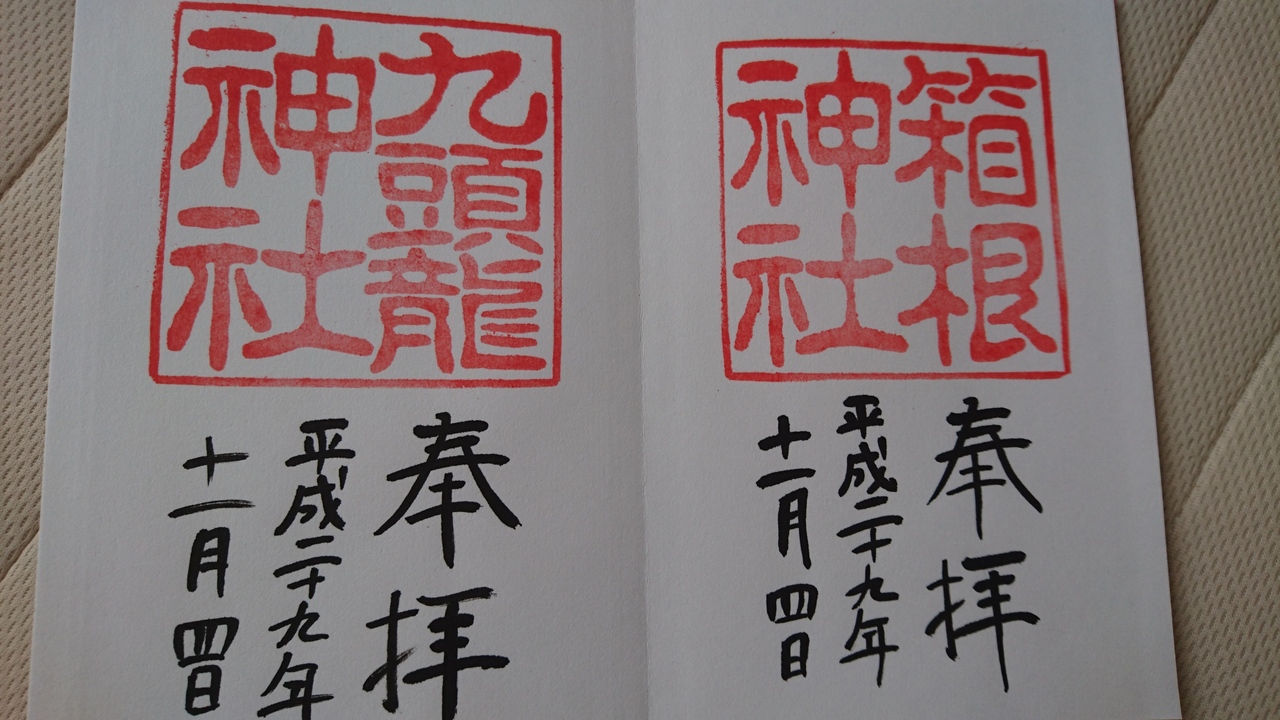 箱根
神社
奉拝
平成二十九年
十一月四日
九頭龍
神社
奉拝
平成二十九年
十一月四日